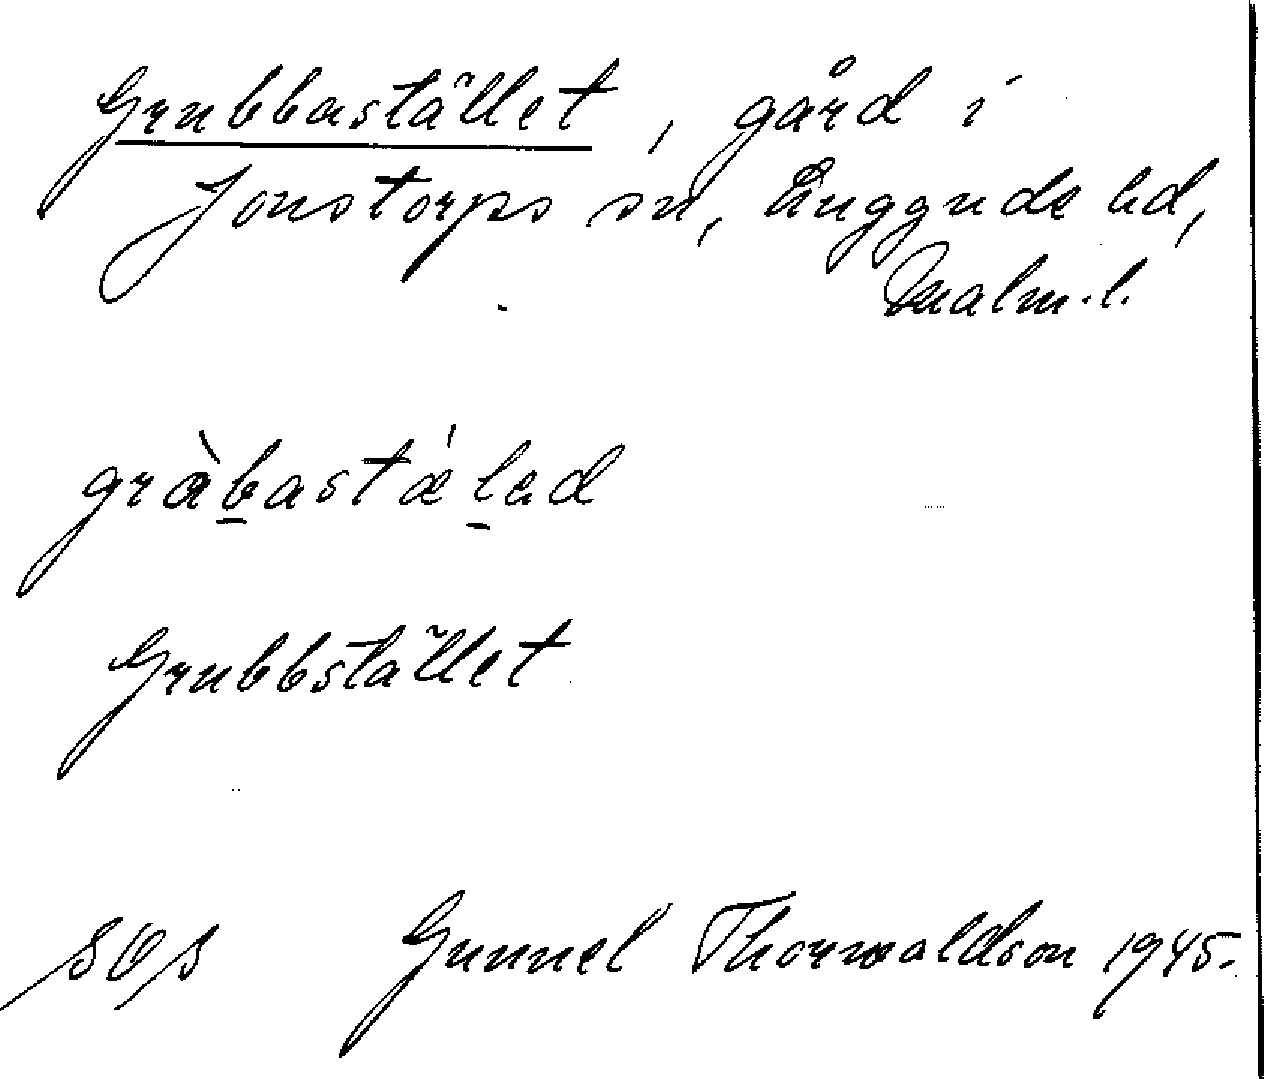 Grubbastället, gård i
Jonstorps sn, Luggude hd,
Malm. l.
gràbastǽlad
Grubbstället
SOS Gunnel Thorwaldson 1945.